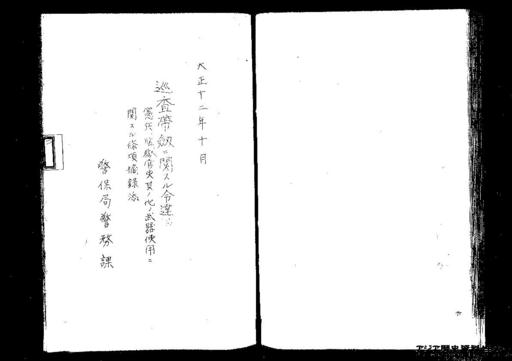 大正十二年十月
巡査帯剣ニ関スル令達
憲兵、監獄官吏其ノ他ノ武器使用ニ
関スル條項摘録添
警保局警務課
アジア歴史資料